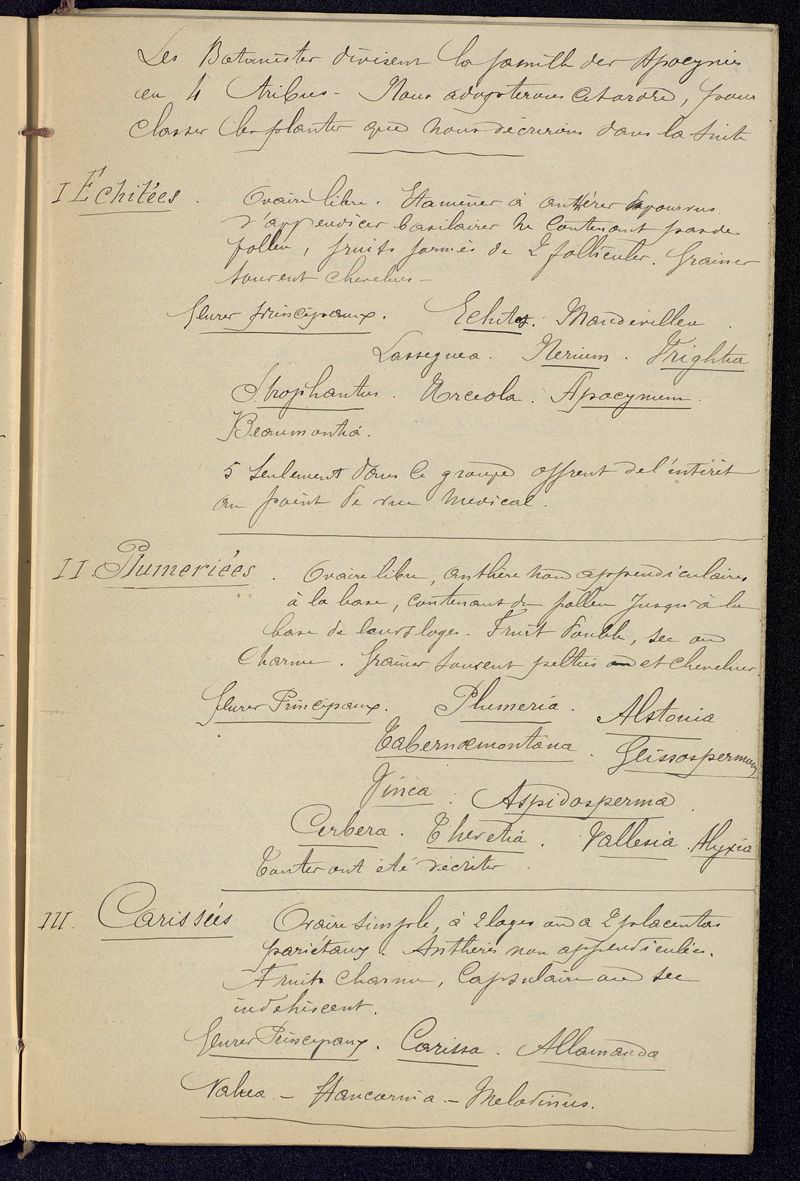 Les Botanistes divisent la famille des Apocynées
en 4 tribus - Nous adopterons cet ordre, pour
classer les plantes que nous décrirons dans la suite
I Echitées. Ovaire libre. Etamines à anthères pourvues
d'appendices basilaires ne contenant pas de
pollen, fruits formés de 2 follicules. Graines
souvent chevelues -
Genres principaux. Echites. Mandevillea.
Lasseguea. Nerium. Wrightia
Strophantus. Urceola. Apocynum.
Beaumontia.
5 seulement dans ce groupe offrent de l'intérêt
au point de vue médical.
II. Plumeriées. Ovaire libre, anthère non appendiculaires
à la base, contenant du pollen jusqu'à la
base de leurs loges. Fruit double, sec ou
charnu. Graines souvent peltées et chevelues
Genres Principaux. Plumeria. Alstonia
Tabernœmontana. Geissospermum
Vinca. Aspidosperma
Cerbera. Thevetia. Vallesia. Alyxia
Toutes ont été décrites
III. Carissées Ovaire simple, à 2 loges ou a 2 placentas
pariétaux. Anthères non appendiculées.
Fruits charnu, capsulaire ou sec
indéhiscent.
Genres Principaux. Carissa. Allamanda
Vahea. - Hancornia - Melodinus.